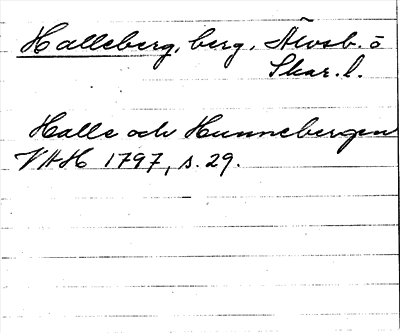 Halleberg, berg. Älvsb. o
Skar. l.
Halle och Hunnebergen
VHH 1797, s. 29.